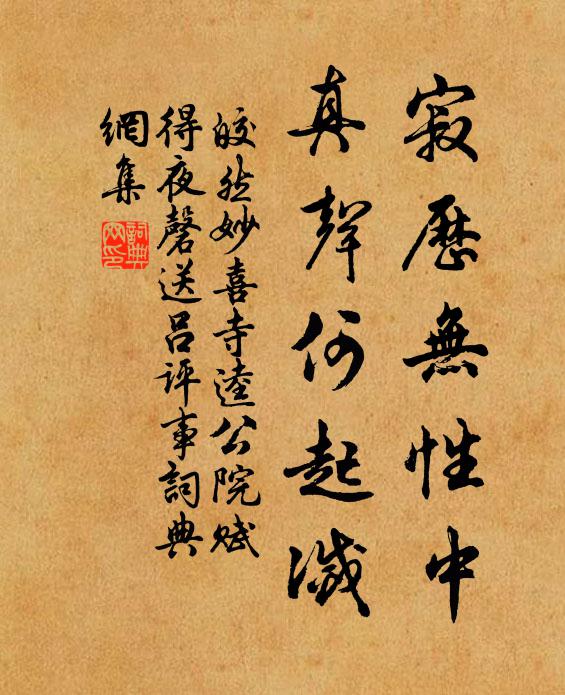 寂歷無性中
真聲何起滅
皎然妙喜寺逵公院賦
得夜磬送呂評事詞典
網集
詞典網印